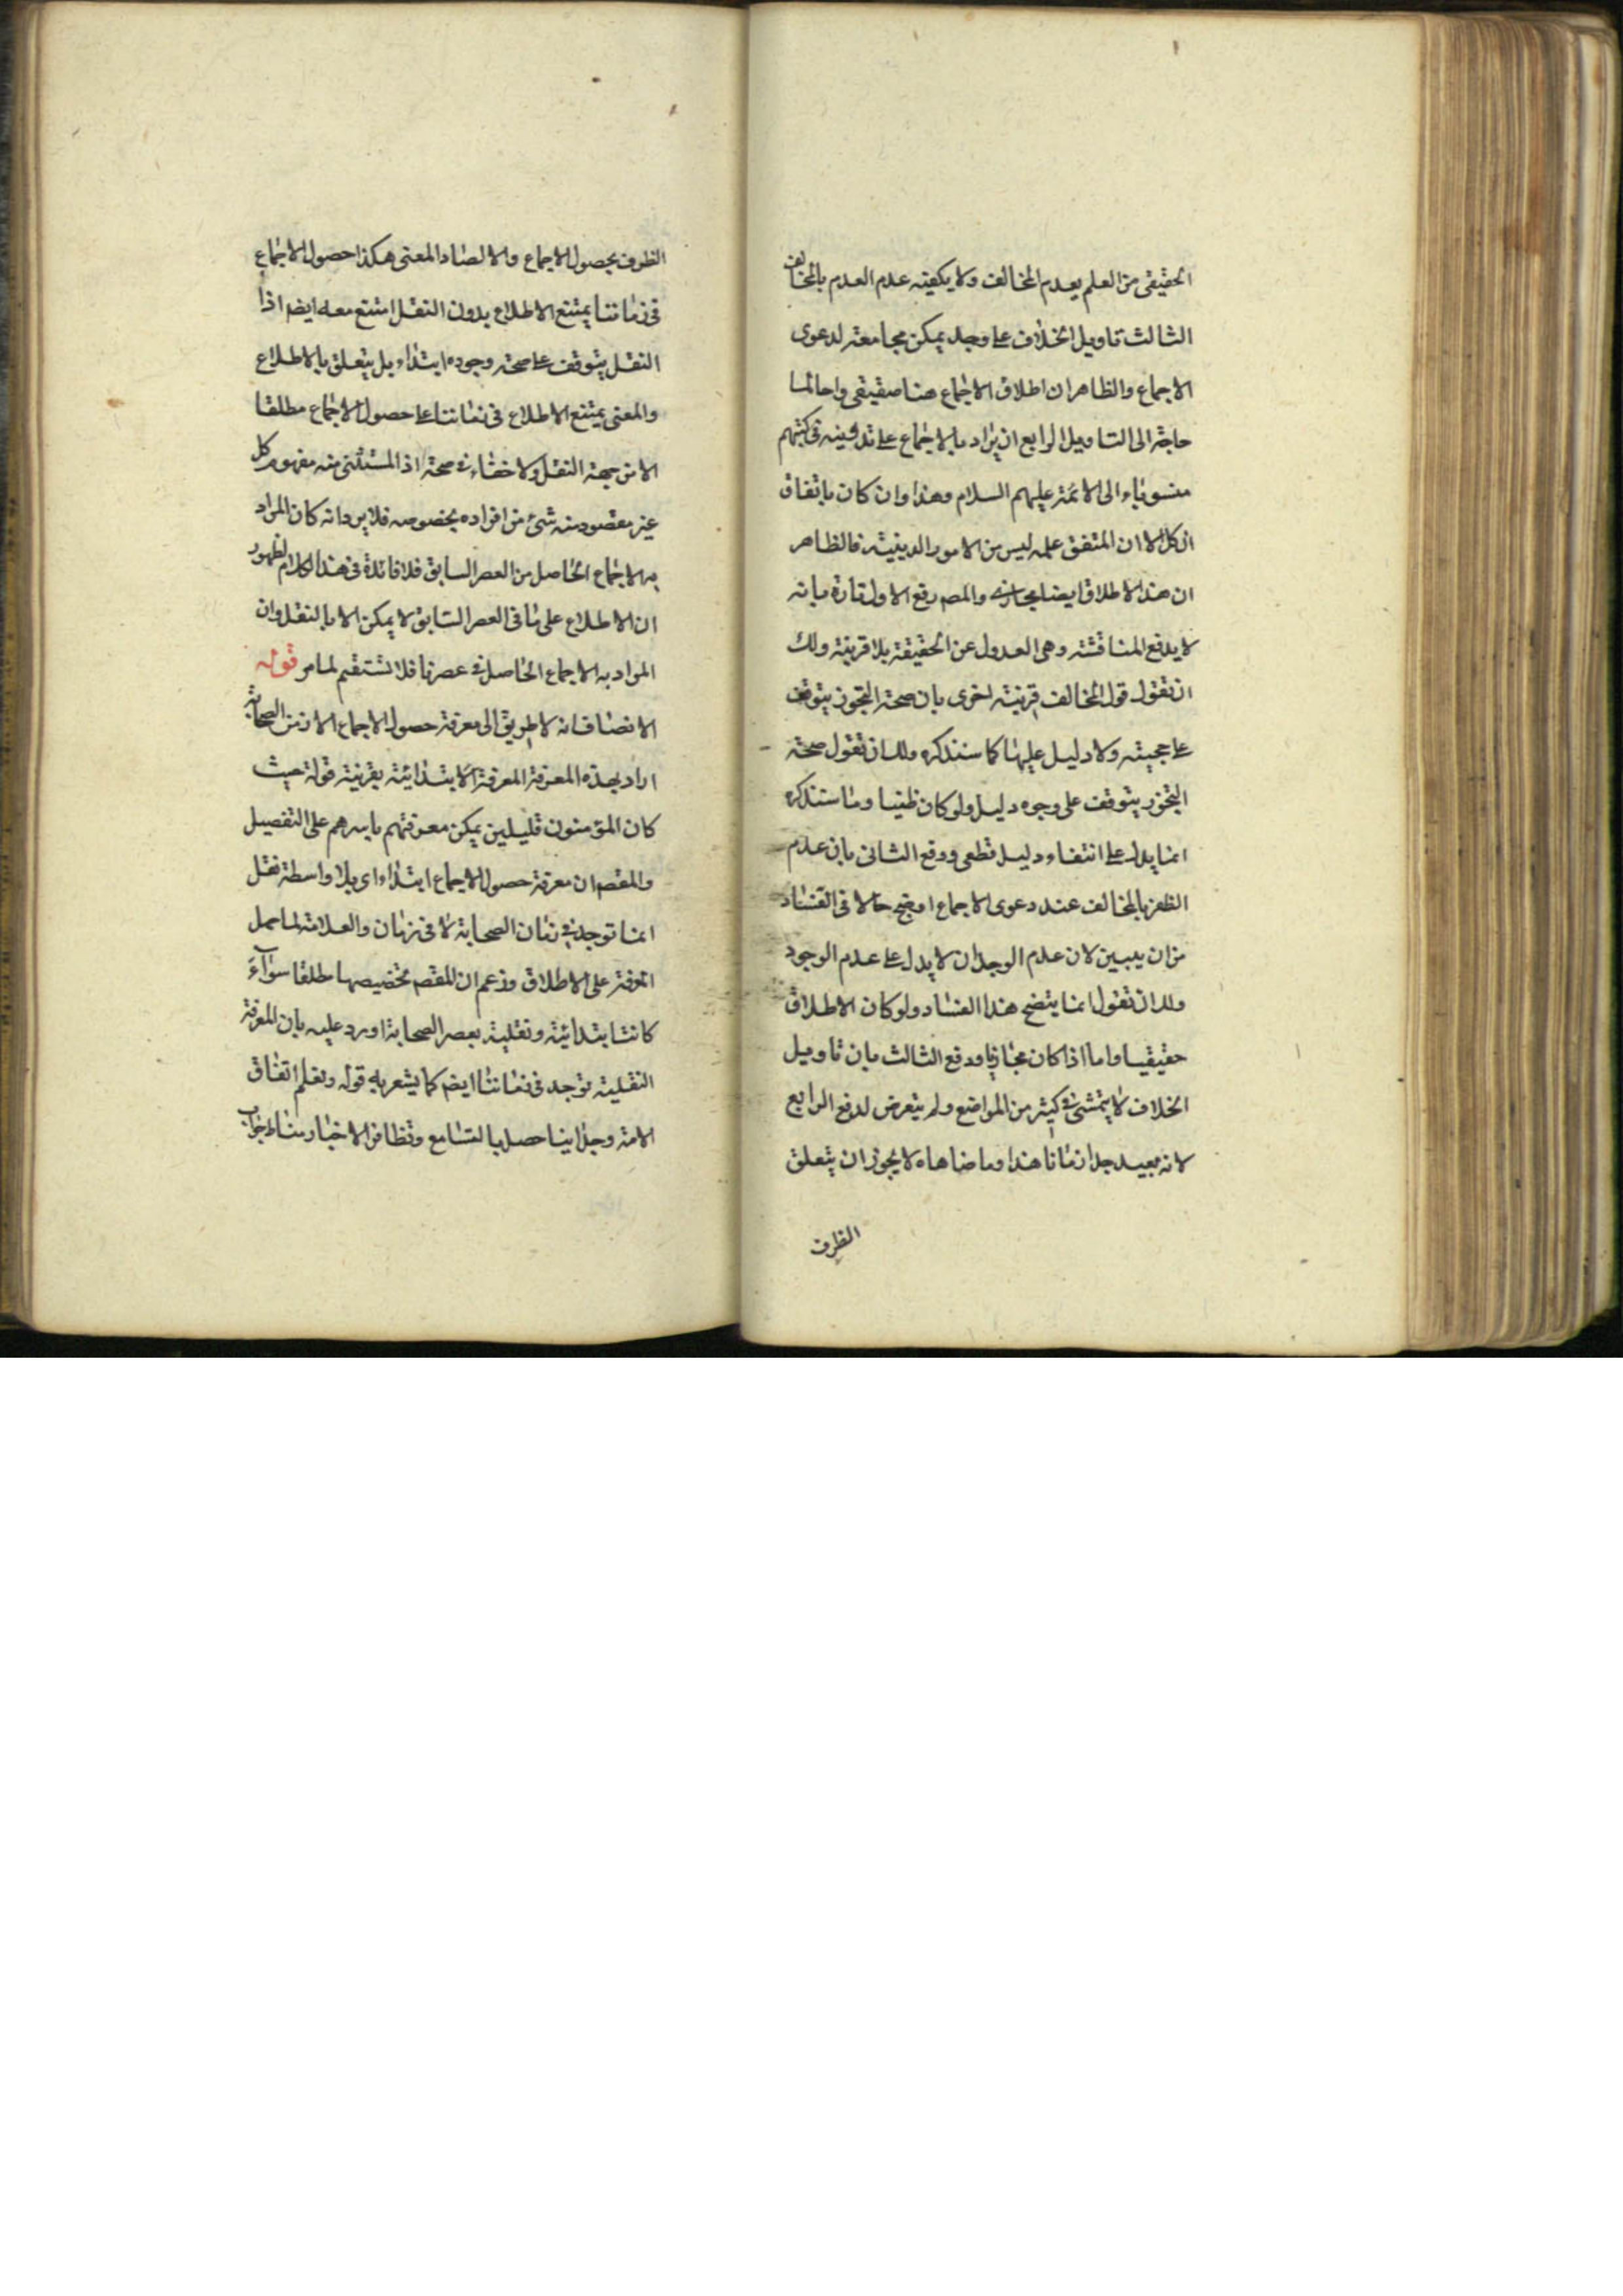 الحقيقى من العلم بعدم المخالف ولا يكفيه عدم العلم بالمخالف
الثالث تاويل الخلاف على وجه يمكن مجامعته لدعوى
الاجماع والظاهر ان اطلاق الاجماع هنا حقيقى واحالما
حاجة الى التاويل الرابع ان يراد بالاجماع على تدوينه فى كتبهم
منسوبا الى الائمة عليهم السلام وهذا وان كان باتفاق
الكل الا ان المتفق عليه ليس من الامور الدينية فالظاهر
ان هذا الاطلاق ايضا مجازى والمصـ رفع الاول تارة بانه
لا يدفع المناقشة وهى العدول عن الحقيقة بلا قرينة ولك
ان تقول قول المخالف قرينة اخرى بان صحة التجوز يتوقف
على حجيته ولا دليل عليها كما سنذكره ولك ان تقول صحة
التجوز يتوقف على وجوه دليل ولو كان ظنيا وما سنذكره
انما يدل على انتفاء دليل قطعى ودفع الثانى بان عدم
الظفر بالمخالف عند دعوى الاجماع اوضح حالا فى الفساد
من ان يبين لان عدم الوجدان لا يدل على عدم الوجود
ولك ان تقول انما يتضح هذا الفساد ولو كان الاطلاق
حقيقيا واما اذا كان مجازيا ودفع الثالث بان تاويل
الخلاف لا يتمشى فى كثير من المواضع ولم يتعرض لدفع الرابع
لانه بعيد جدا زماننا هذا وما ضاهاه لا يجوز ان يتعلق
الظرف
الظرف بحصول الاجماع والا لصار المعنى هكذا حصول الاجماع
فى زماننا يمتنع الاطلاع بدون النقل امتنع معه ايضا اذا
النقل يتوقف على صحة وجوده ابتداء بل يتعلق بالاطلاع
والمعنى يمتنع الاطلاع فى زماننا على حصول الاجماع مطلقا
الا من جهة النقل ولا خفاء فى صحة اذ المستثنى منه مفهوم كل
غير مقصود منه شئ من افراده بخصوصه فلا يرد انه كان المراد
به الاجماع الحاصل من العصر السابق فلا فائدة فى هذا الكلام لظهور
ان الاطلاع على ما فى العصر السابق لا يمكن الا بالنقل وان
المراد به الاجماع الحاصل فى عصرنا فلا تستقيم لما مر قوله
الانصاف انه لا طريق الى معرفة حصول الاجماع الا زمن الصحابة
اراد بهذه المعرفة المعرفة الابتدائية بقرينة قوله حيث
كان المؤمنون قليلين يمكن معرفتهم باسرهم على التفصيل
والمقصـ ان معرفة حصول الاجماع ابتداء اى بلا واسطة نقل
انما توجد فى زمان الصحابة لا فى زمان والعلامة لما حمل
المعرفة على الاطلاق وزعم ان المقصـ تخصيصها مطلقا سواء
كانت ابتدائية ونقلية بعصر الصحابة اورد عليه بان المعرفة
النقلية توجد فى زماننا ايضـ كما يشعر به قوله ونعلم اتفاق
الامة وجدانيا حصل بالتسامع وتظافر الاخبار